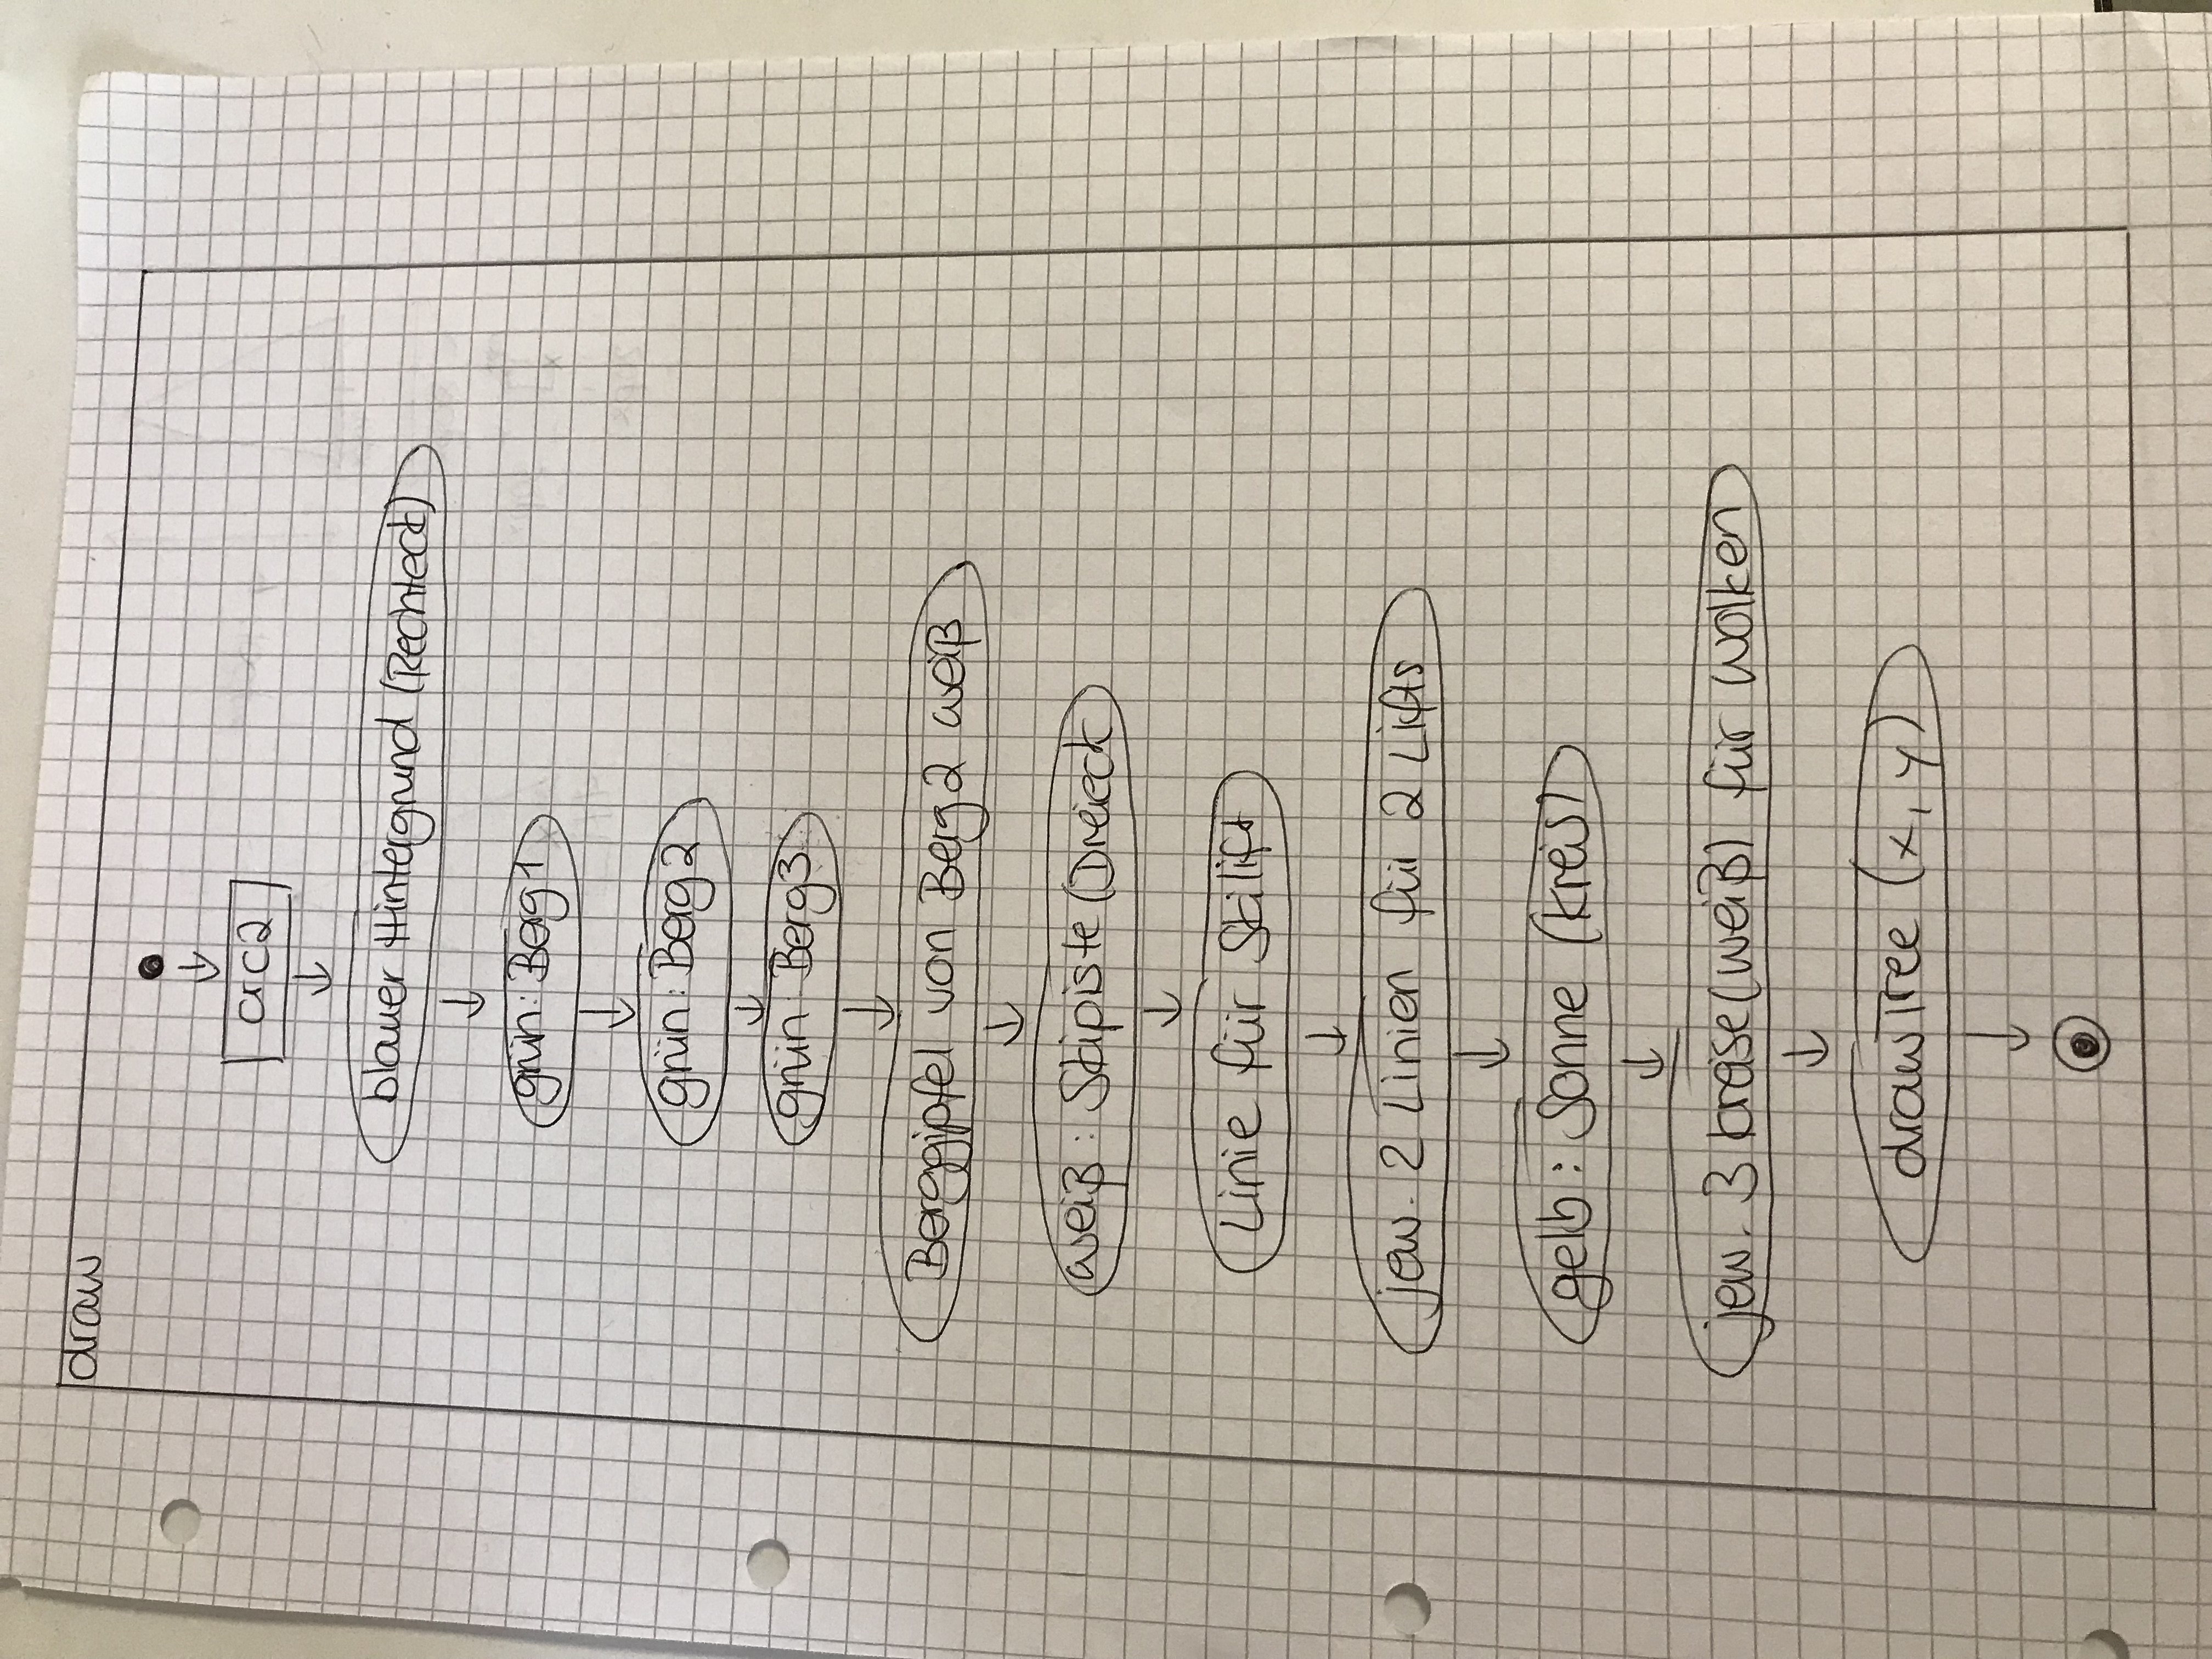 draw
crc2
blauer Hintergrund (Rechteck)
grün: Berg1
grün: Berg2
grün Berg3
Berggipfel von Berg2 weiß
weiß: Skipiste (Dreieck
Linie für Skilift
jew. 2 Linien für 2 Lifts
gelb: Sonne (Kreis)
jew. 3 Kreise (weiß) für Wolken
drawTree (x, y)